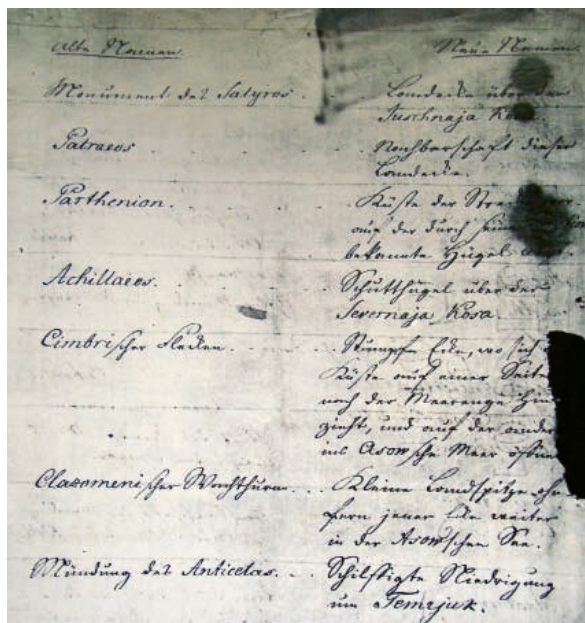 Alte Namen. Neue Namen.
Monument des Satyros. Landecke über der
Juschnaja Kosa.
Patraeos Nachbarschaft dieser
Landecke.
Parthenion. Küste der
auf der durch
bekannte Hügel
Achillaeos. Schutthügel über der
Severnaja Kosa.
Cimbrischer Flecken. Stumpfe Ecke, wo sich
Küste auf einer Seite
nach der Meerenge hin
zieht, und auf der andern
ins Asowsche Meer öffnet
Clazomenischer Wachthurm. Kleine Landspitze ohn
fern jener Ecke weiter
in der Asow'schen See.
Mündung des Anticetas. Schilfigte Niedrigung
um Temrjuk.